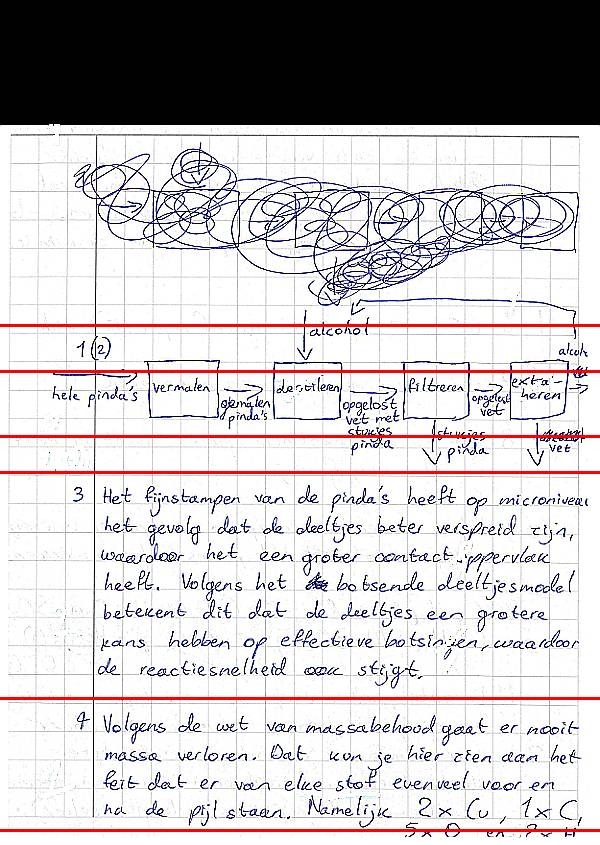 alcohol
1 (2)
alcoh
hele pinda's
vermalen
gemalen
pinda's
destileren
opgelost
vet met
stukjes
pinda
filtreren
opgelost
vet
extra-
heren
stukjes
pinda
vet
3 Het fijnstampen van de pinda's heeft op microniveau
het gevolg dat de deeltjes beter verspreid zijn,
waardoor het een groter contact ippervlak
heeft. Volgens het botsende deeltjesmodel
betekent dit dat de deeltjes een grotere
kans hebben op effectieve botsingen, waardoor
de reactiesnelheid stijgt.
4 Volgens de wet van massabehoud gaat er nooit
massa verloren. Dat kun je hier zien aan het
feit dat er van elke stof evenveel voor en
na de pijl staan. Namelijk 2x Cu, 1x C,
5x O en 2x H